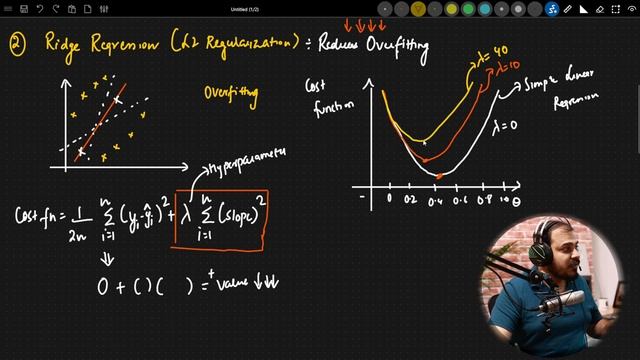 Untitled (1/2)
② Ridge Regression (L2 Regularization) ÷ Reduces Overfitting
λ=40
λ=10
Cost function
Simple Linear Regression
Overfitting
λ=0
Hyperparameter
Cost fn = 1/2n Σ i=1 n (yi - ŷi)² + λ Σ i=1 n (slope)²
0 0.2 0.4 0.6 0.8 1.0 θ
0 + ( ) ( ) = + value ↓↓↓